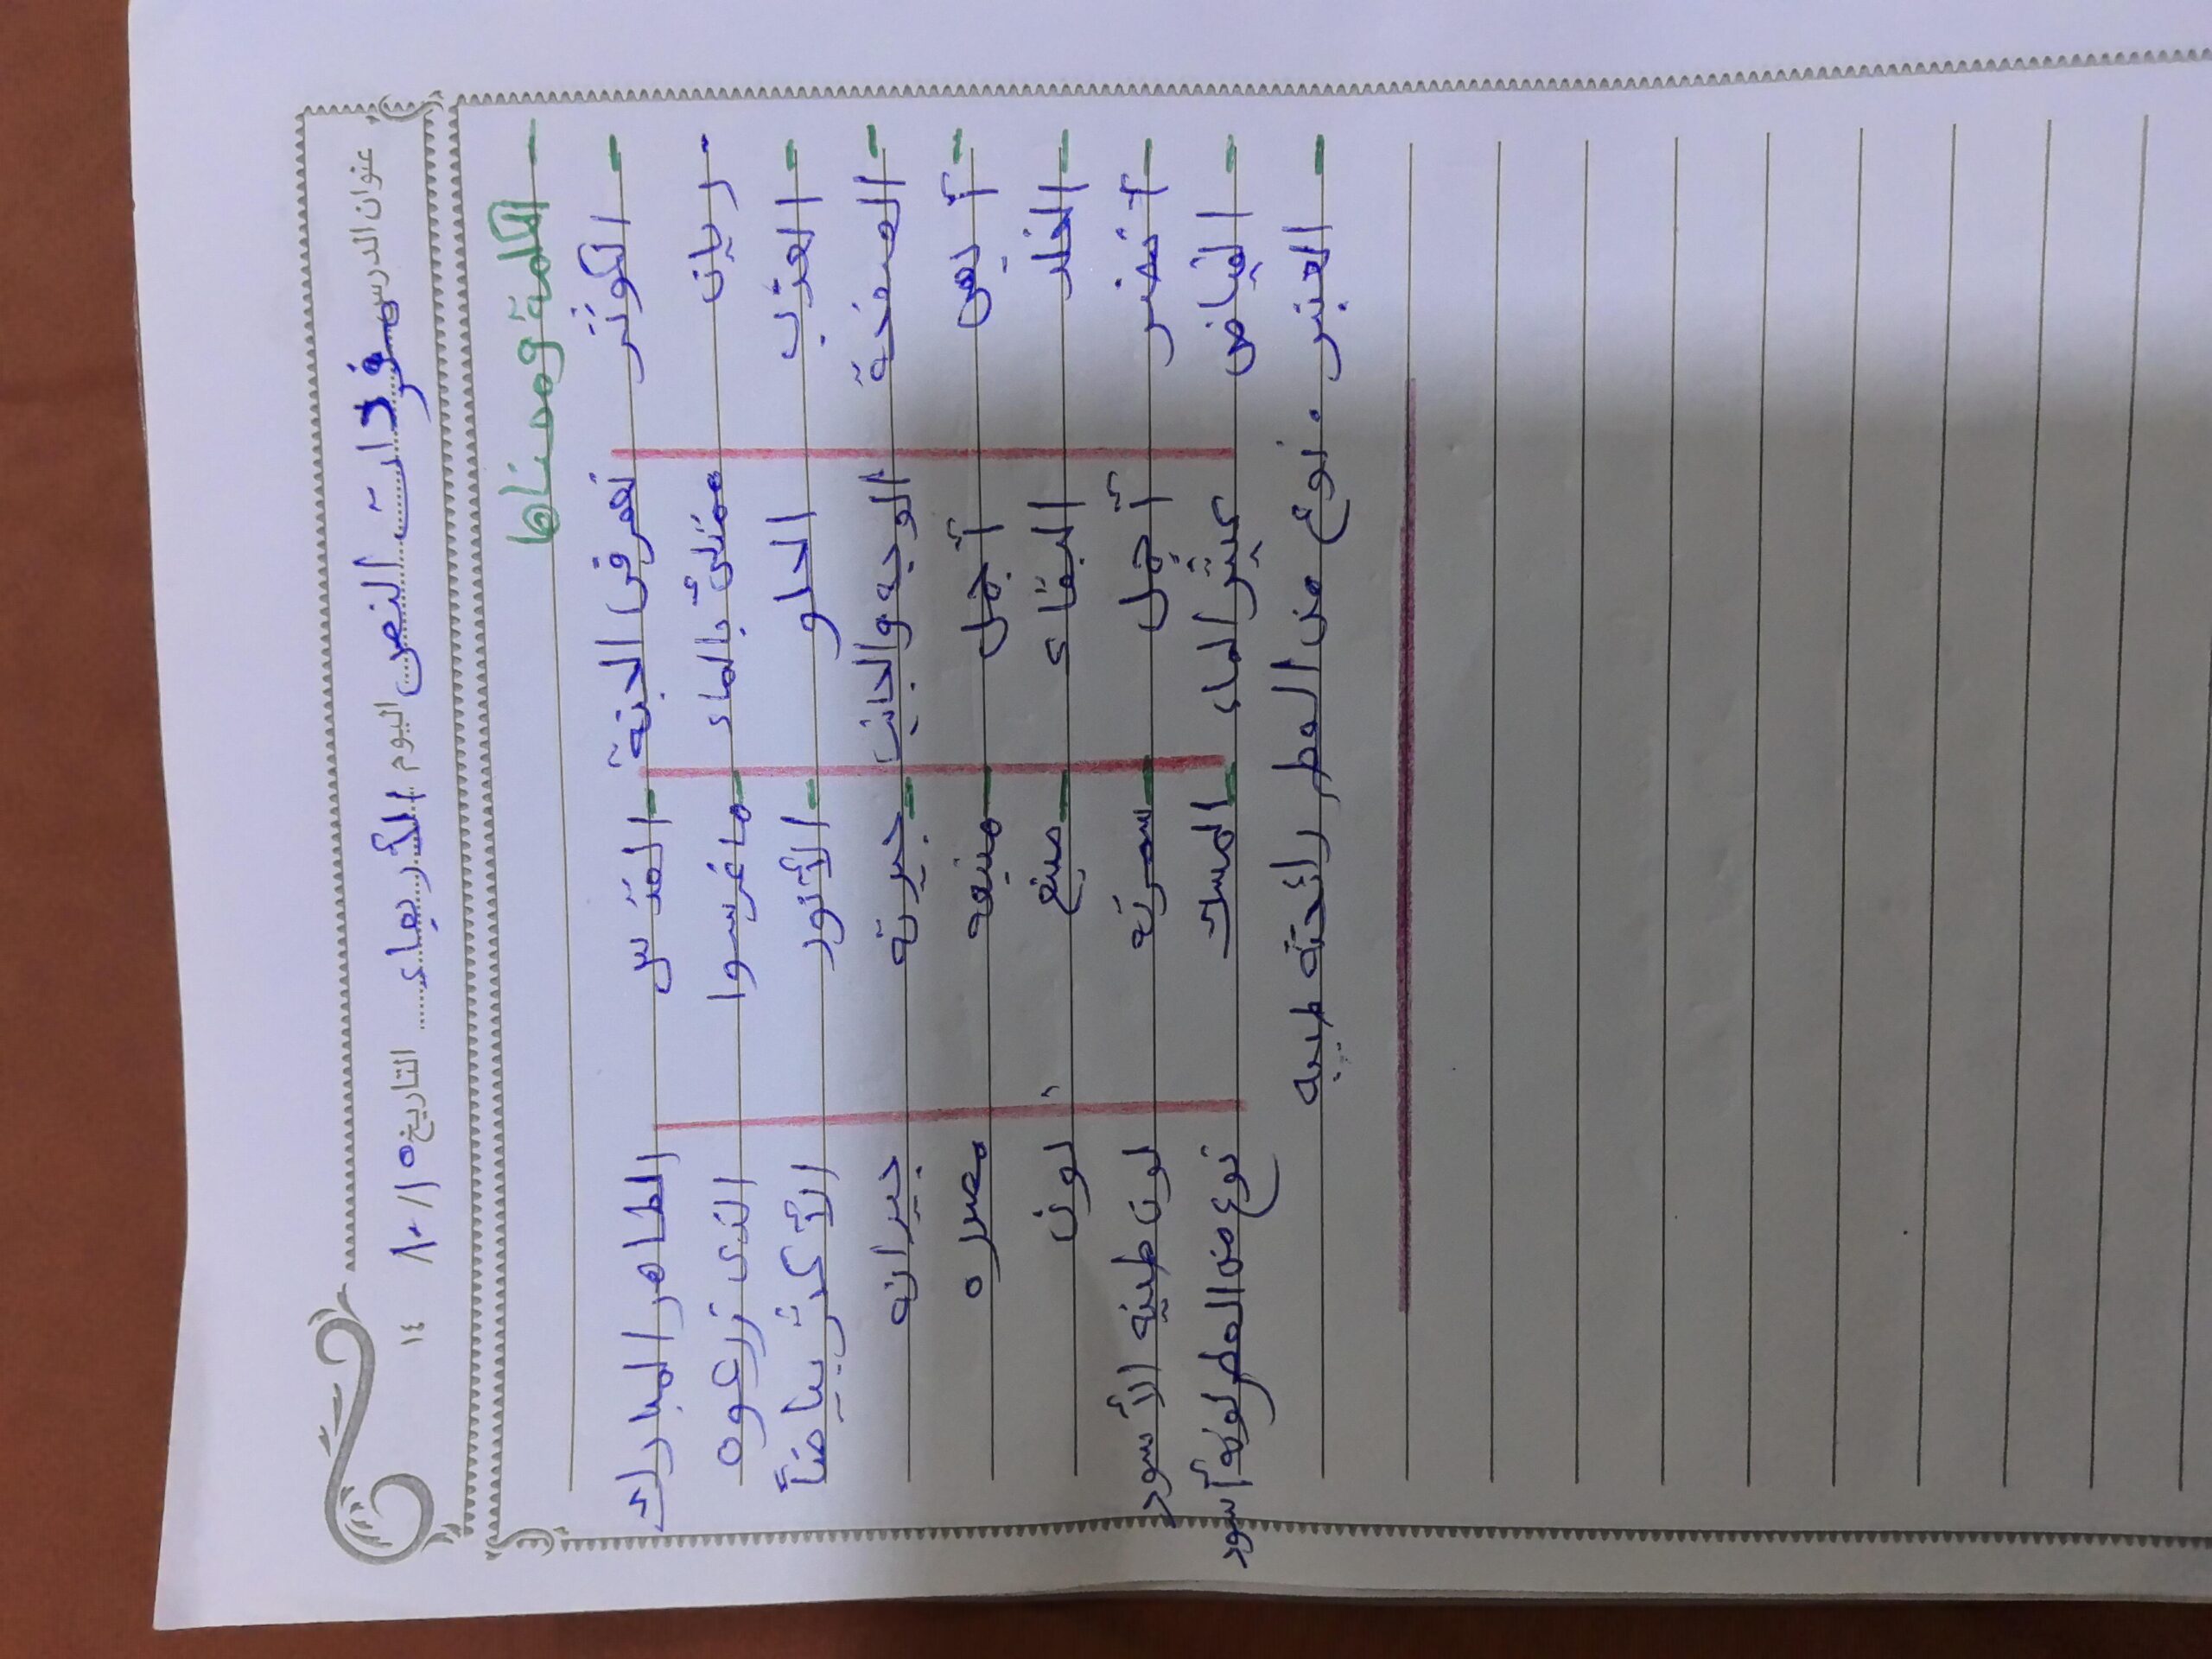 عنوان الدرس مفردات النص اليوم الأربعاء التاريخ ١٥ / ٨
١٤
الكلمة ومعناها
- الكوثر نهر في الجنة - المقدس الطاهر المبارك
- ريان ممتلئ بالماء - ماغرسوا الذى زرعوه
- العذب الحلو - الأنور الأكثر بياضاً
- الصفحة الوجه والجانب - جيرته جيرانه
- أبهى أجمل - منبعه مصدره
- الخلد البقاء - صبغ لون
- أنضر أجمل - سمرته لون طينه الأسود
- الفياض كثير الماء - المسك نوع من العطر لونه أسود
- العنبر . نوع من العطر رائحته طيبه